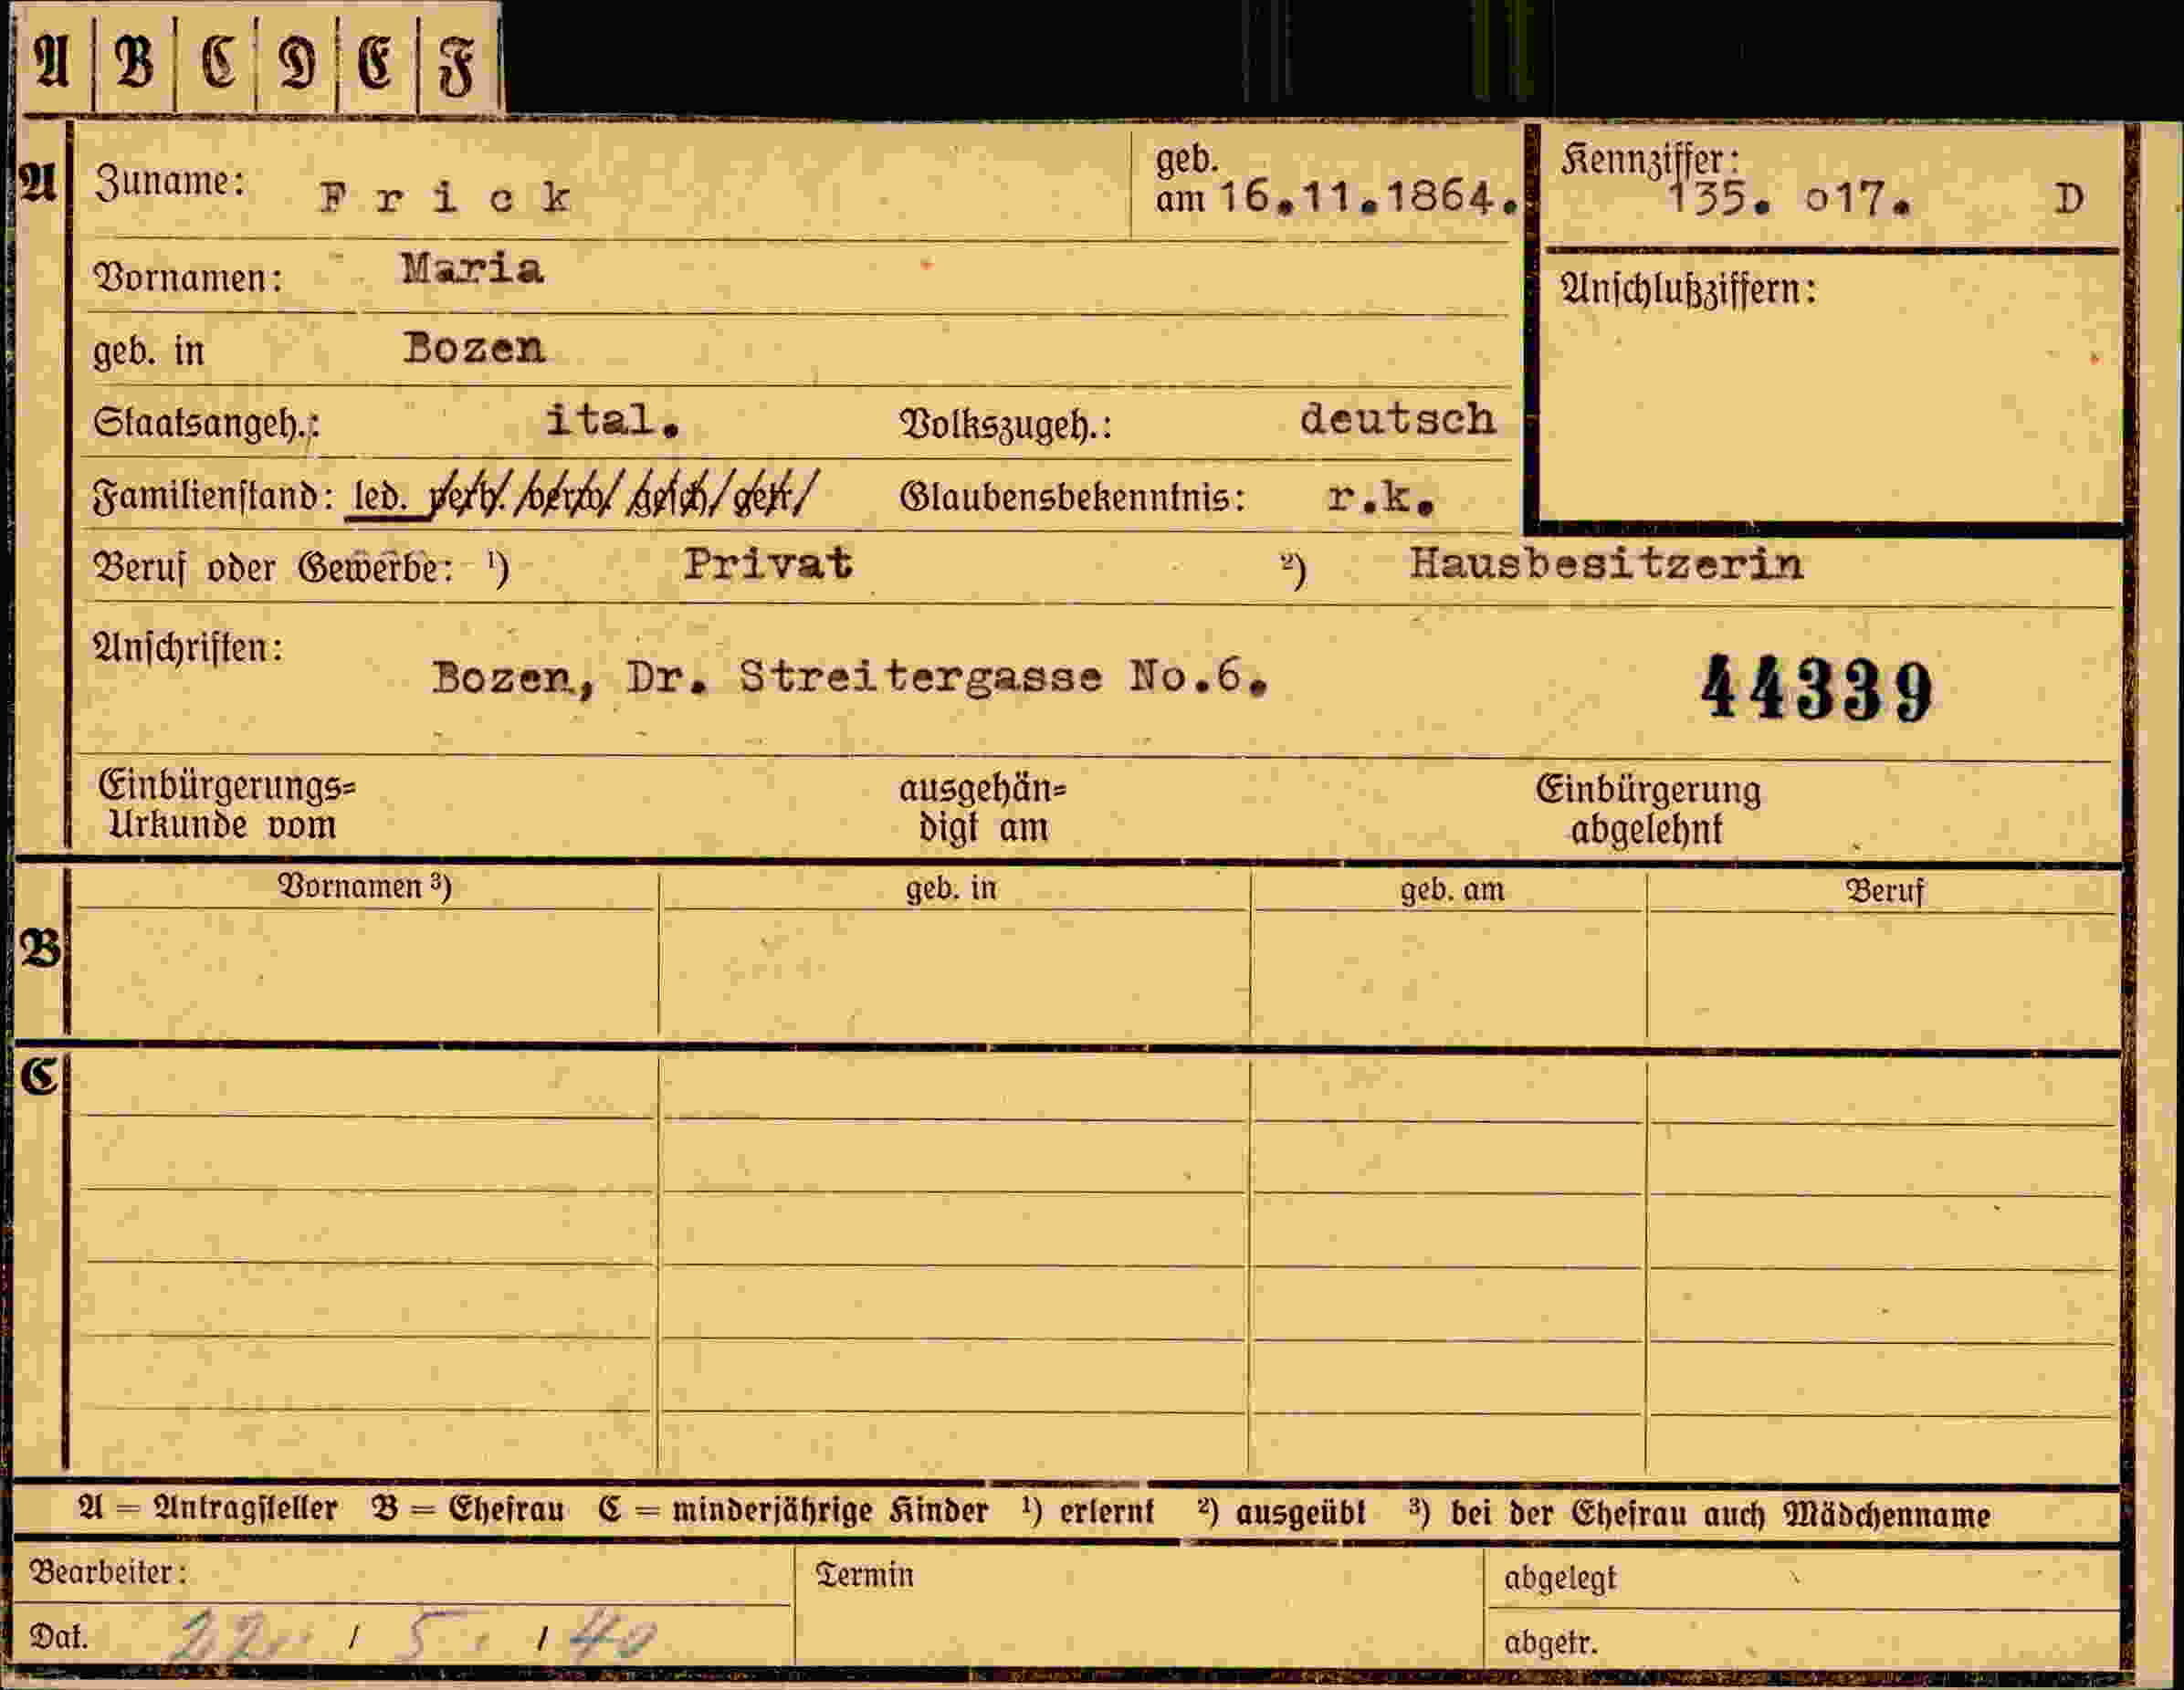 A B C D E F
A Zuname: Frick geb. am 16.11.1864. Kennziffer: 135. o17. D
Vornamen: Maria Anschlußziffern:
geb. in Bozen
Staatsangeh.: ital. Volkszugeh.: deutsch
Familienstand: led. verh. verw. gesch. getr. Glaubensbekenntnis: r.k.
Beruf oder Gewerbe: ¹) Privat ²) Hausbesitzerin
Anschriften: Bozen, Dr. Streitergasse No.6. 44339
Einbürgerungs= ausgehän= Einbürgerung
Urkunde vom digt am abgelehnt
Vornamen ³) geb. in geb. am Beruf
B
C
A = Antragsteller B = Ehefrau C = minderjährige Kinder ¹) erlernt ²) ausgeübt ³) bei der Ehefrau auch Mädchenname
Bearbeiter: Termin abgelegt
Dat. 22. / 5. / 40 abgetr.